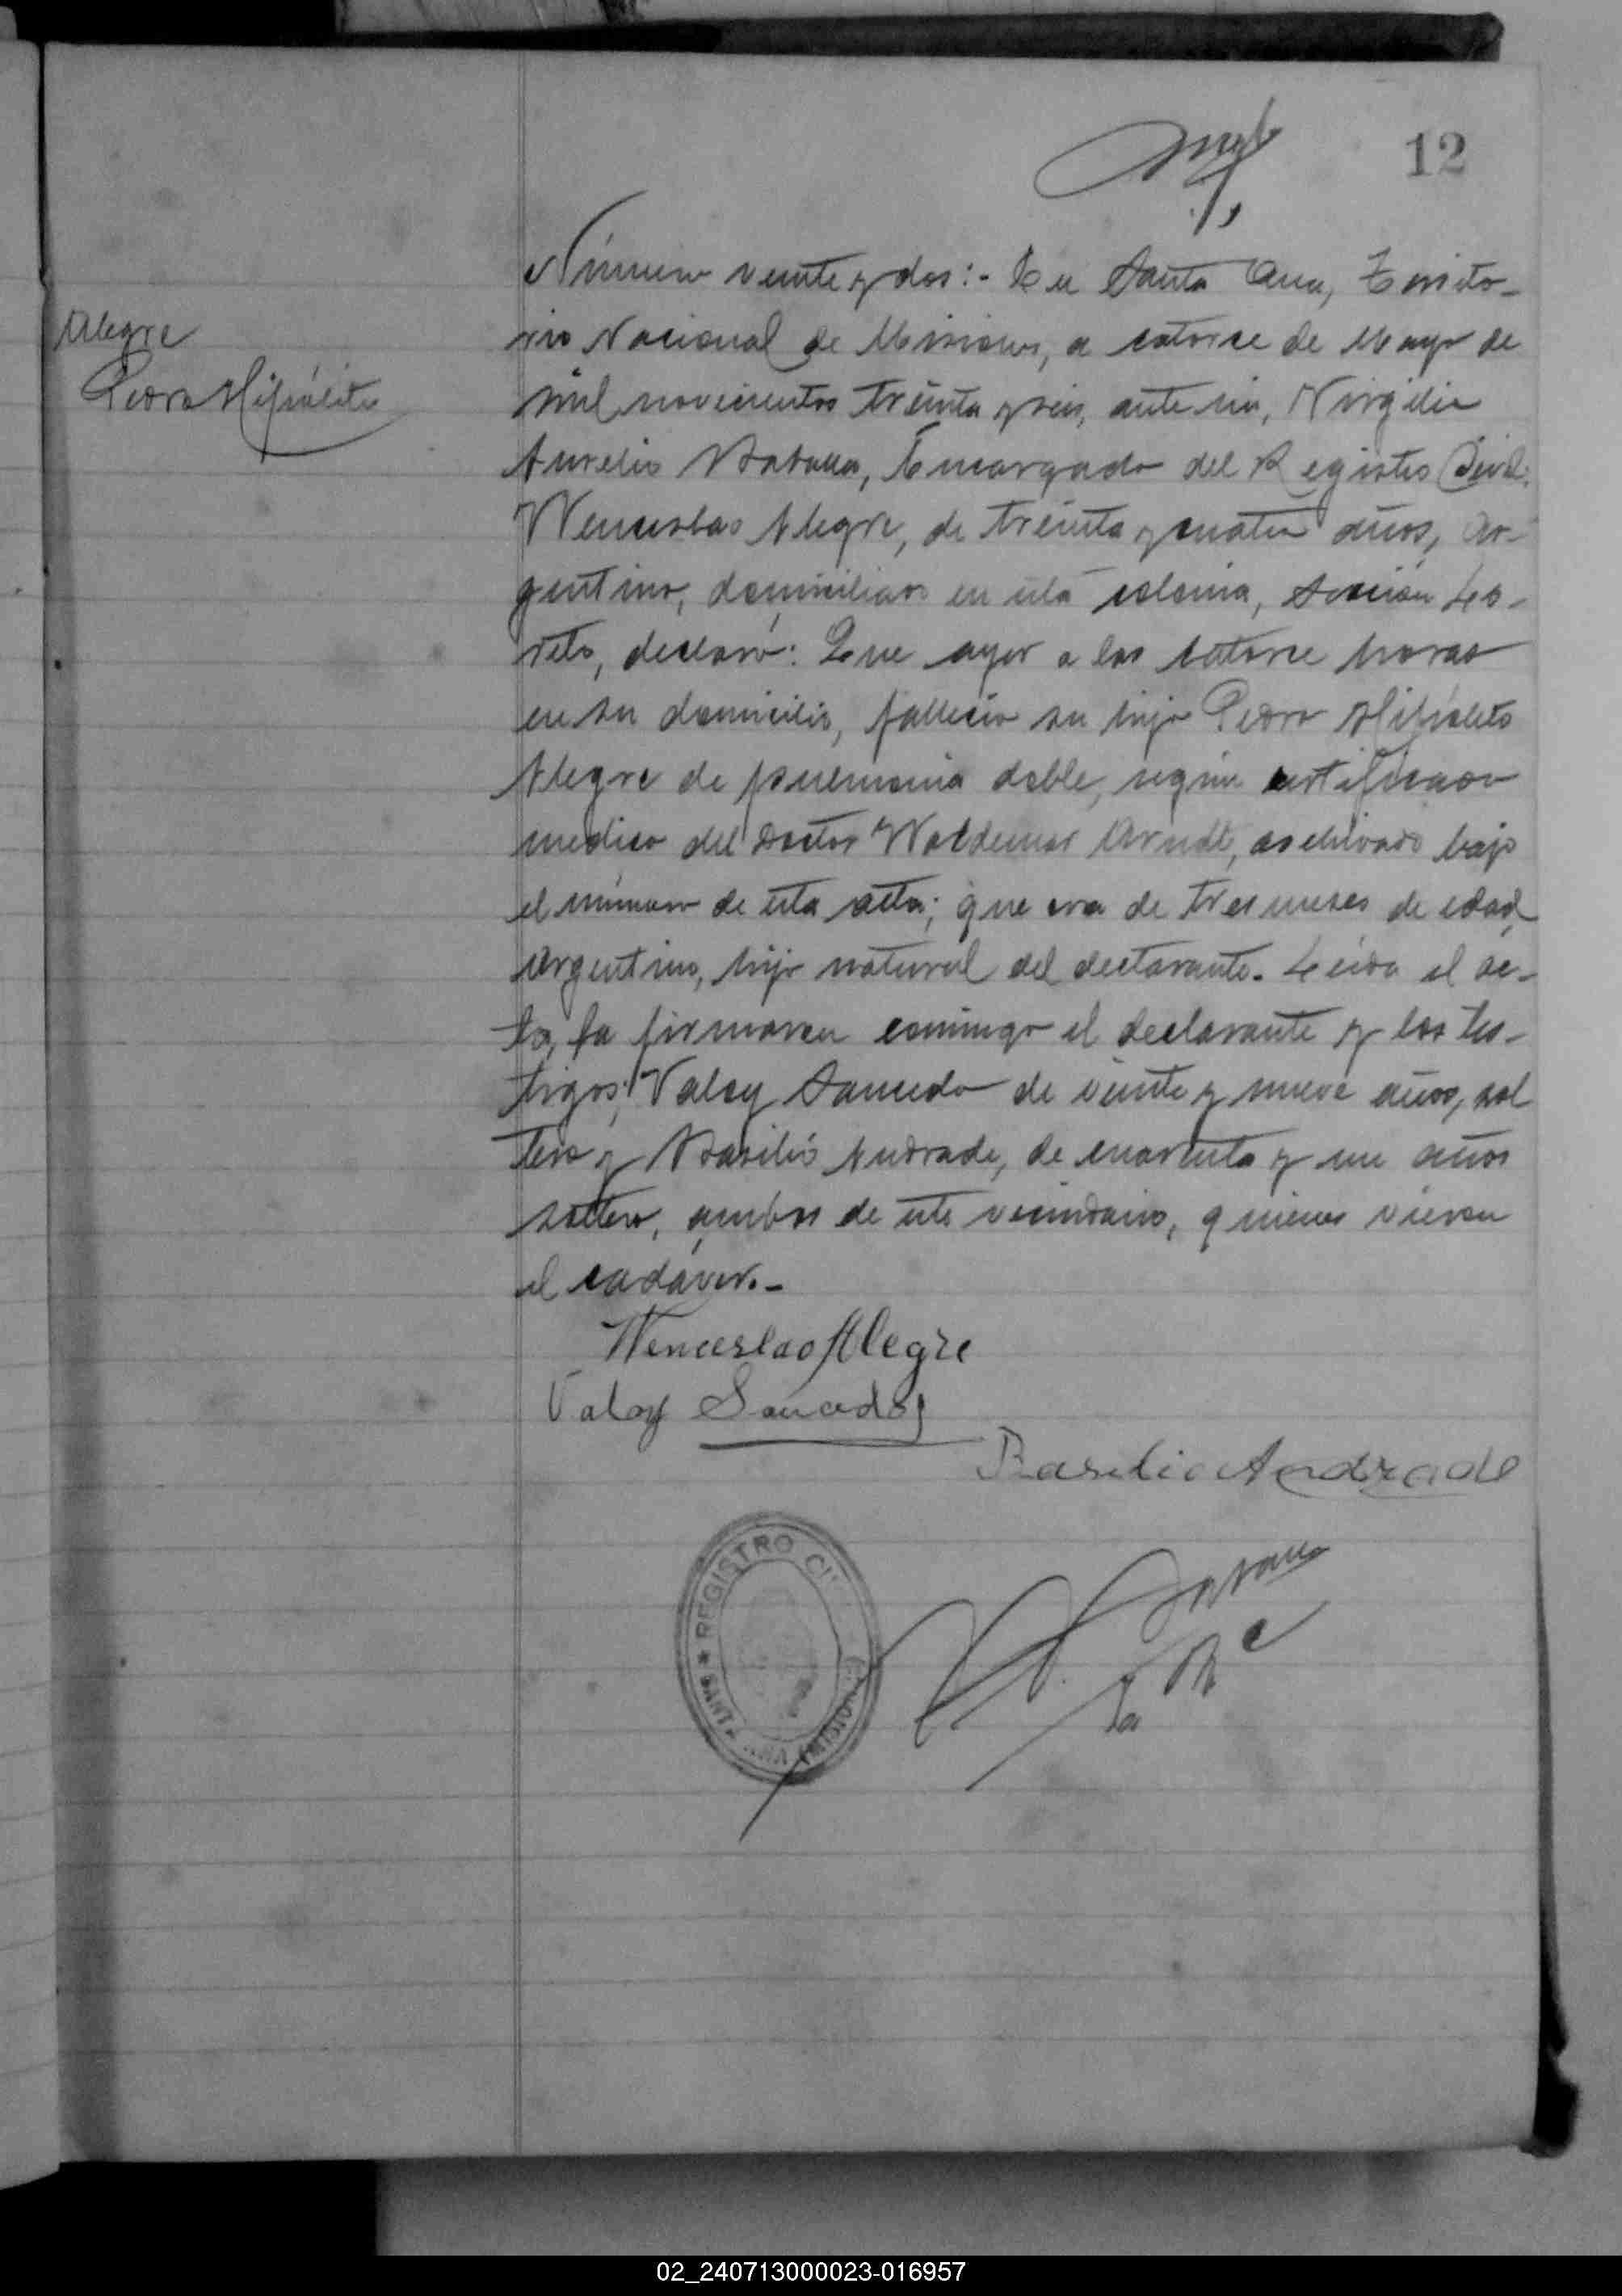 12
Número veinte y dos:- En Santa Ana, Territo-
rio Nacional de Misiones, a catorce de Mayo de
mil novecientos treinta y seis, ante mi, Virgilio
Aurelio, Encargado del Registro Civil:
Wenceslao Alegre, de treinta y cuatro años, ar-
gentino, domiciliado en esta colonia, Sección Lo-
reto, declaró: Que ayer a las catorce horas
en su domicilio, falleció su hijo Pedro Hipólito
Alegre de pneumonia doble, según certificado
medico del Doctor Waldemar Arndt, archivado bajo
el número de esta acta; que era de tres meses de edad,
argentino, hijo natural del declarante. Leída el ac-
ta, la firmaron conmigo el declarante y los tes-
tigos; Valoy Saucedo de veinte y nueve años, sol
tero y Basilio Andrade, de cuarenta y un años
soltero, ambos de este vecindario, quienes vieron
el cadáver.-
Alegre
Pedro Hipólito
Wenceslao Alegre
Valoy Saucedo
Basilio Andrade
REGISTRO CIVIL
SANTA ANA (MISIONES)
02_240713000023-016957